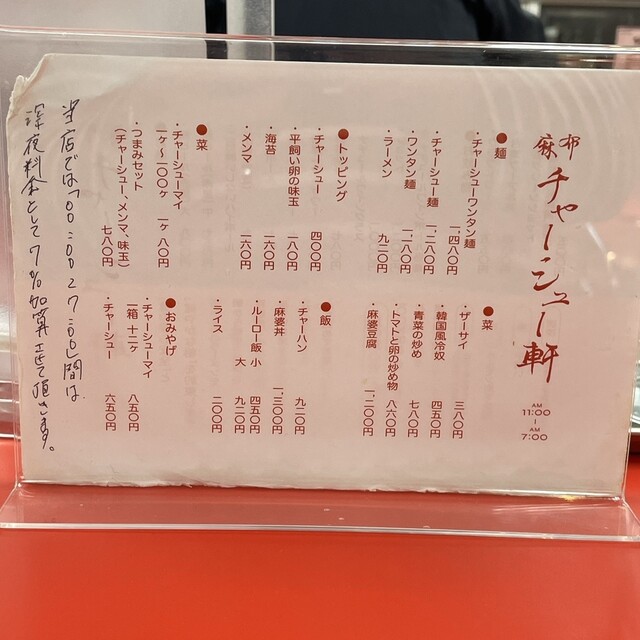 麻布
チャーシュー軒
AM
11:00
|
AM
7:00
●麺
・チャーシューワンタン麺 一、四八〇円
・チャーシュー麺 一、二八〇円
・ワンタン麺 一、一八〇円
・ラーメン 九二〇円
●トッピング
・チャーシュー 四〇〇円
・平飼い卵の味玉 一八〇円
・海苔 一六〇円
・メンマ 一六〇円
●菜
・チャーシューマイ
一ヶ〜一〇〇ヶ 一ヶ 八〇円
・つまみセット
(チャーシュー、メンマ、味玉) 七八〇円
●菜
・ザーサイ 三八〇円
・韓国風冷奴 四五〇円
・青菜の炒め 七八〇円
・トマトと卵の炒め物 八六〇円
・麻婆豆腐 一、二〇〇円
●飯
・チャーハン 九二〇円
・麻婆丼 一、三〇〇円
・ルーロー飯 小 四五〇円
大 九二〇円
・ライス 二〇〇円
●おみやげ
・チャーシューマイ
一箱 十二ヶ 八五〇円
・チャーシュー 六五〇円
当店では「00:00〜27:00」間は、
深夜料金として7%加算させて頂きます。